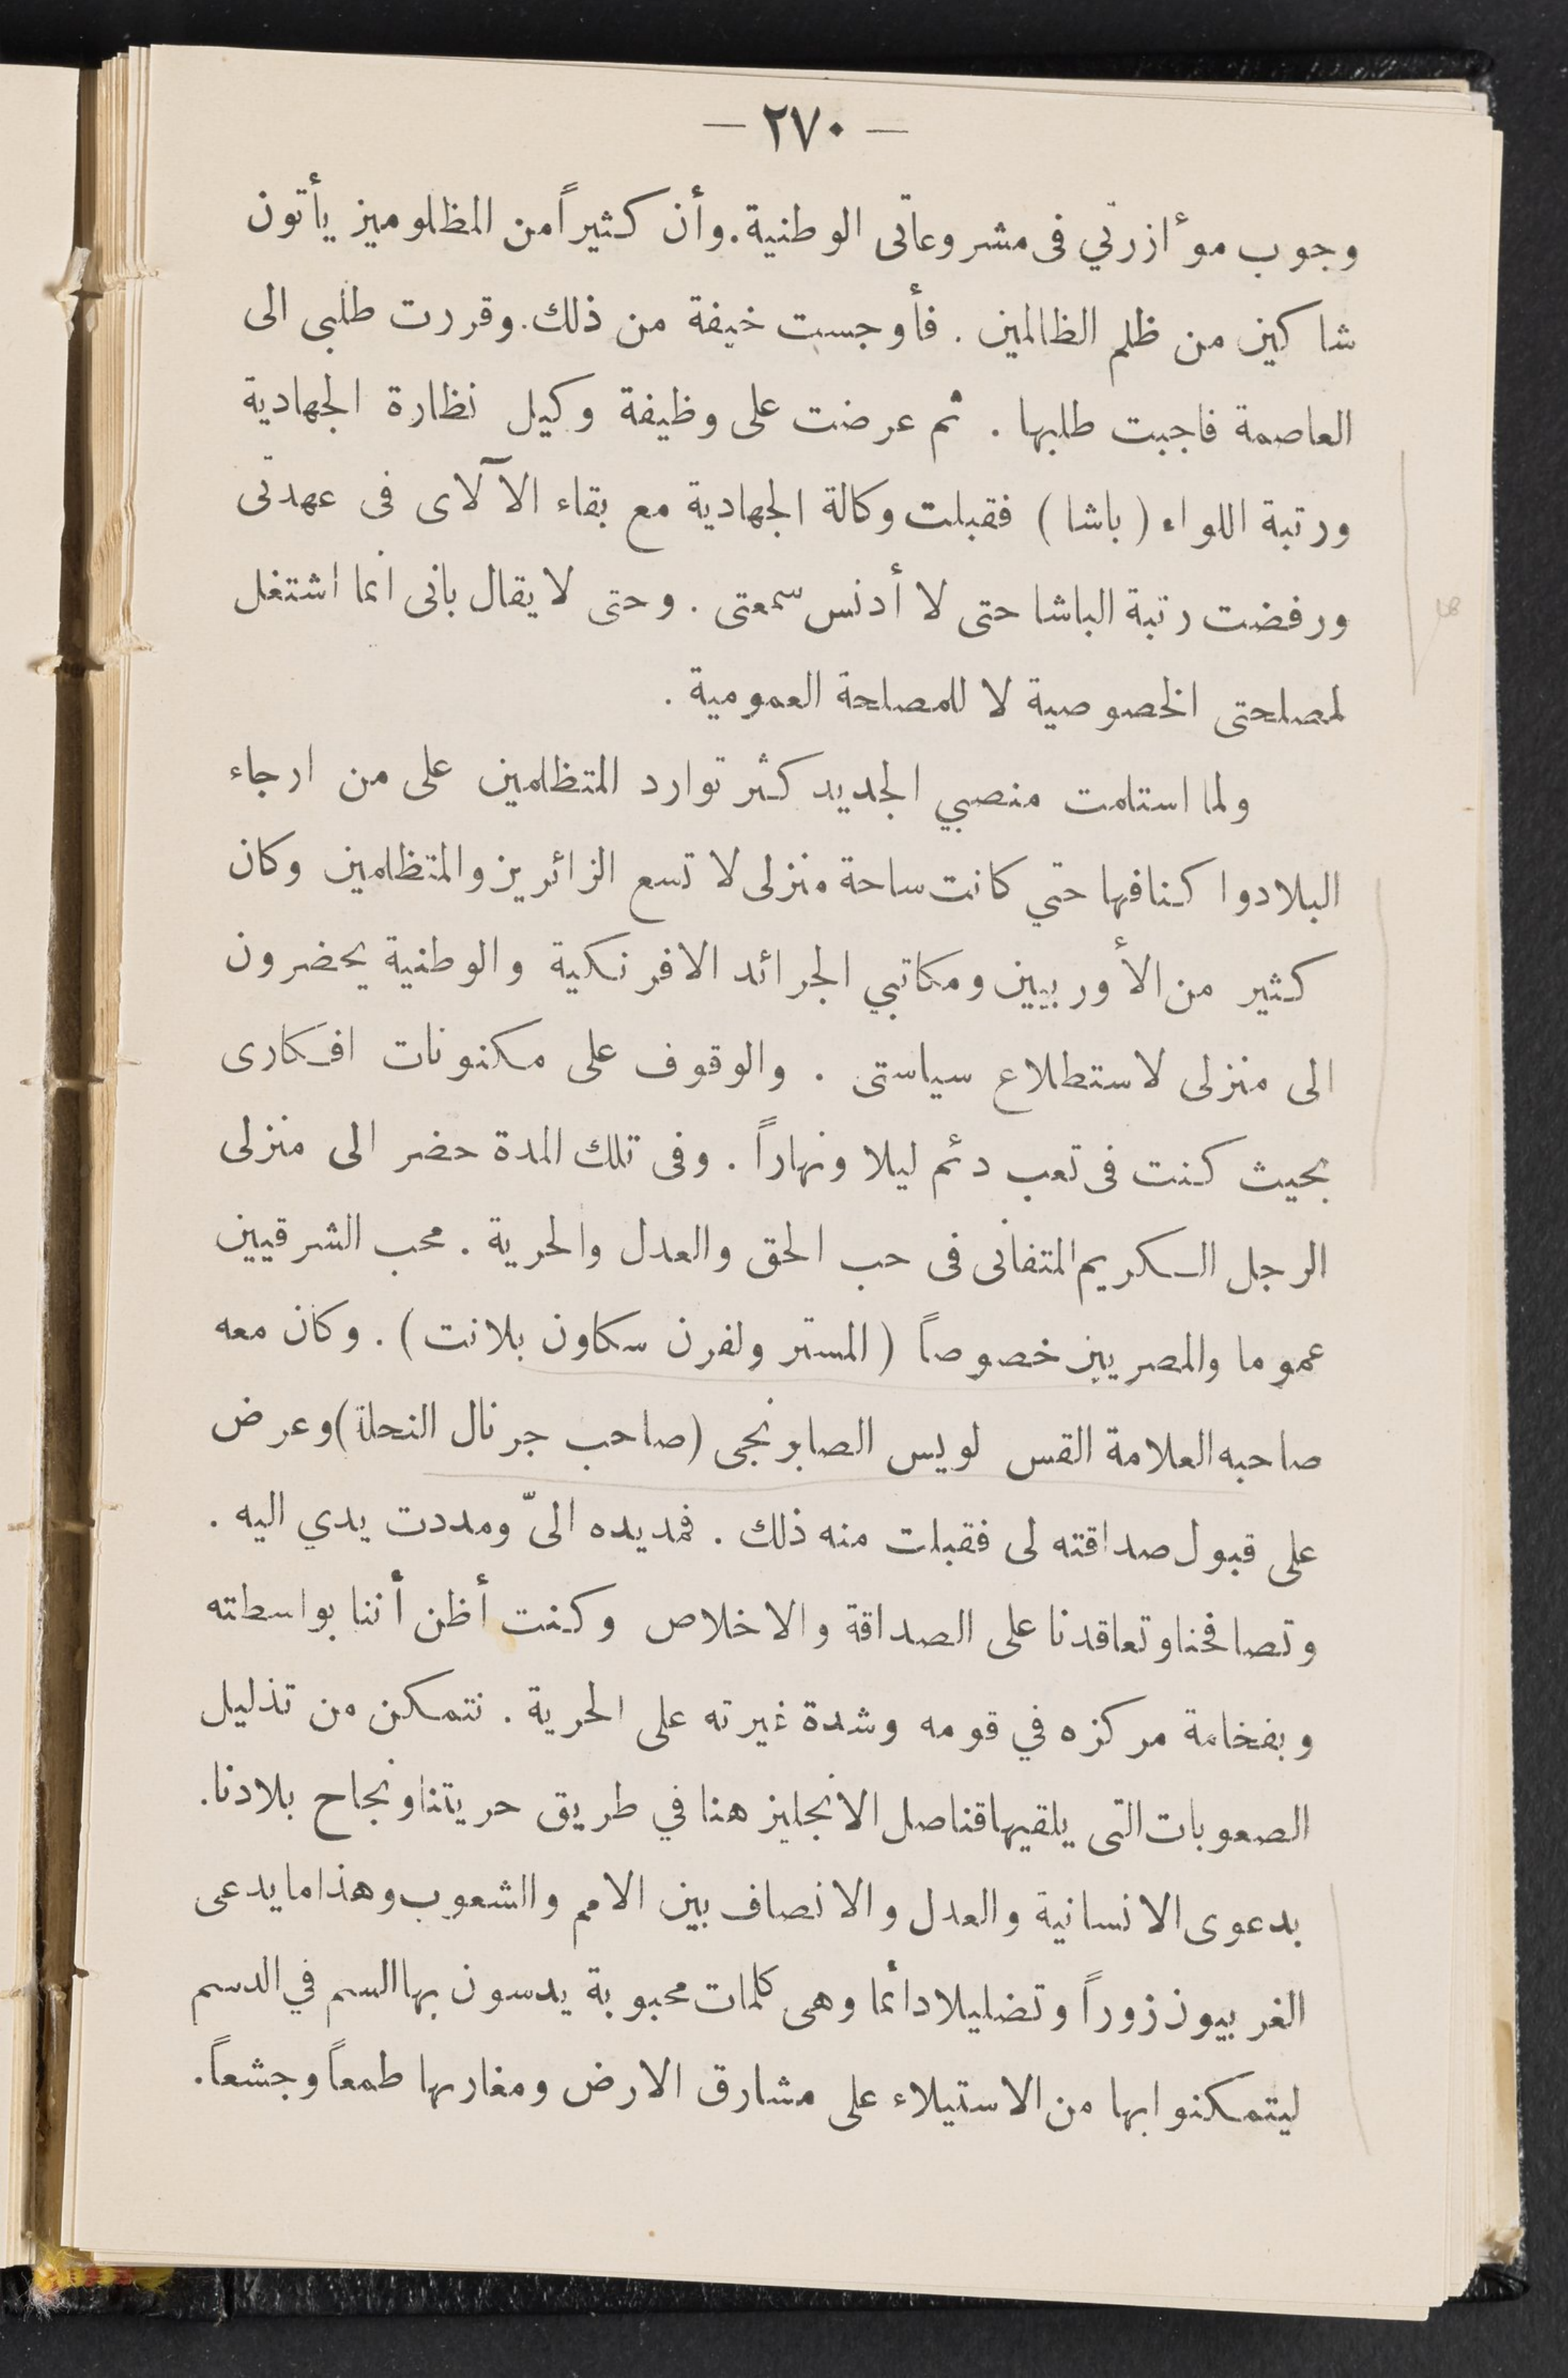 — ٢٧٠ —
وجوب موءازرتي فى مشروعاتى الوطنية. وأن كثيراً من المظلومين يأتون
شاكين من ظلم الظالمين . فأوجست خيفة من ذلك. وقررت طلبى الى
العاصمة فاجبت طلبها . ثم عرضت على وظيفة وكيل نظارة الجهادية
ورتبة اللواء (باشا) فقبلت وكالة الجهادية مع بقاء الآلاى فى عهدتى
ورفضت رتبة الباشا حتى لا أدنس سمعتى . وحتى لا يقال بانى انما اشتغل
لمصلحتى الخصوصية لا للمصلحة العمومية .
ولما استلمت منصبي الجديد كثر توارد المتظلمين على من ارجاء
البلاد واكنافها حتي كانت ساحة منزلى لا تسع الزائرين والمتظلمين وكان
كثير من الأوربيين ومكاتبي الجرائد الافرنكية والوطنية يحضرون
الى منزلى لاستطلاع سياستى . والوقوف على مكنونات افكارى
بحيث كنت فى تعب دئم ليلا ونهاراً . وفى تلك المدة حضر الى منزلى
الرجل الكريم المتفانى فى حب الحق والعدل والحرية . محب الشرقيين
عموما والمصريين خصوصاً (المستر ولفرن سكاون بلانت) . وكان معه
صاحبه العلامة القس لويس الصابونجى (صاحب جرنال النحلة) وعرض
على قبول صداقته لى فقبلت منه ذلك . فمد يده الىّ ومددت يدي اليه .
وتصافحنا وتعاقدنا على الصداقة والاخلاص وكنت أظن أننا بواسطته
وبفخامة مركزه في قومه وشدة غيرته على الحرية . نتمكن من تذليل
الصعوبات التى يلقيها قناصل الانجليز هنا في طريق حريتنا ونجاح بلادنا.
بدعوى الانسانية والعدل والانصاف بين الامم والشعوب وهذا ما يدعى
الغربيون زوراً وتضليلا دائما وهى كلمات محبوبة يدسون بها السم في الدسم
ليتمكنوا بها من الاستيلاء على مشارق الارض ومغاربها طمعاً وجشعاً.